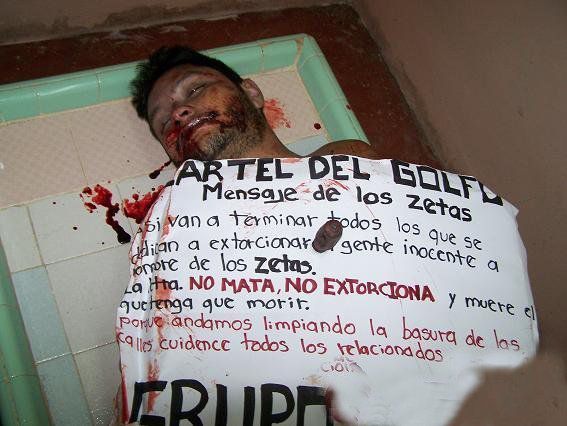 ARTEL DEL GOLFO
Mensaje de los zetas
si van a terminar todos los que se
dedican a extorcionar gente inocente a
nombre de los zetas.
La ltra. NO MATA, NO EXTORCIONA y muere el
que tenga que morir.
Porque andamos limpiando la basura de las
calles cuidence todos los relacionados
GRUPO